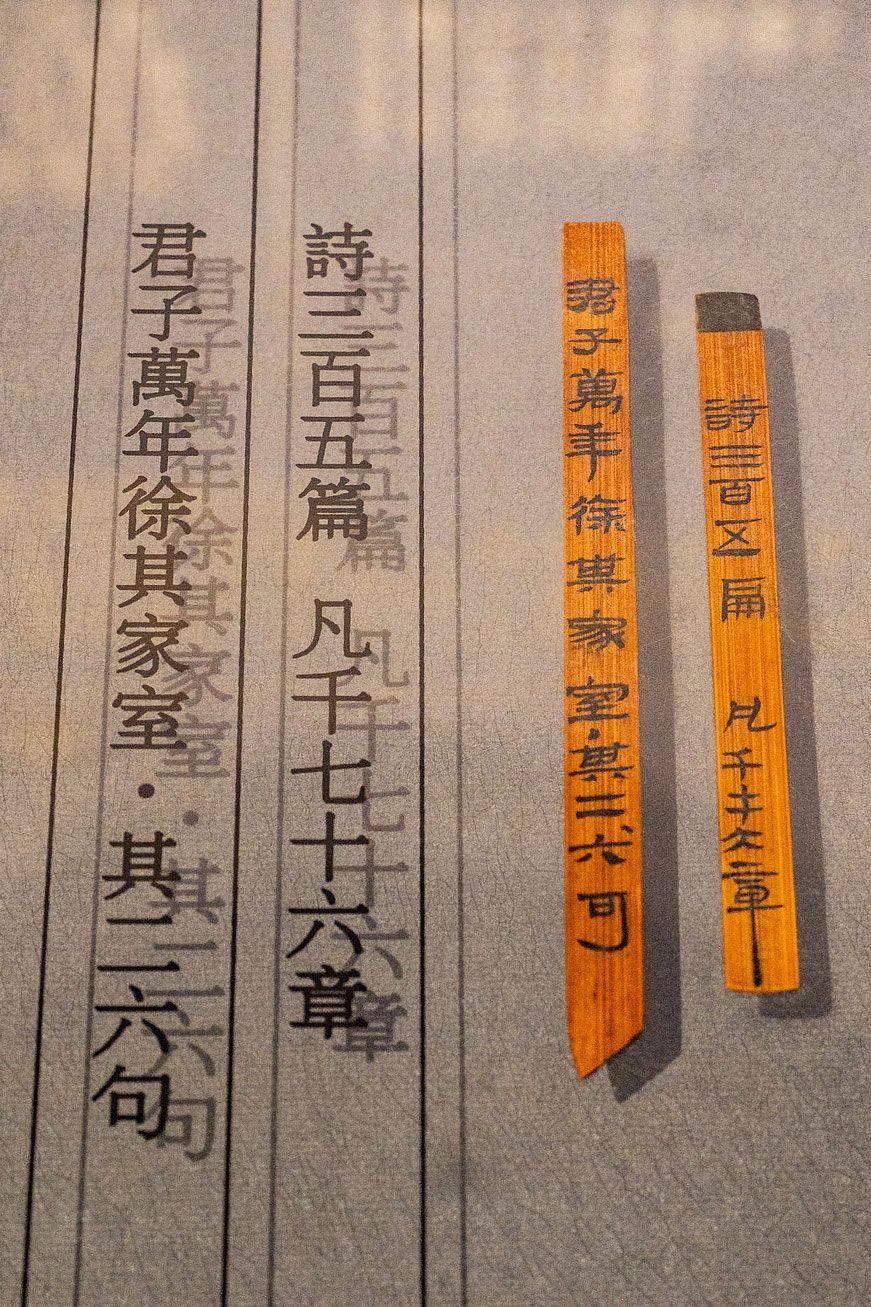 詩三百五扁 凡千七十六章
君子萬年徐其家室·其二六句
詩三百五篇 凡千七十六章
君子萬年徐其家室·其二六句